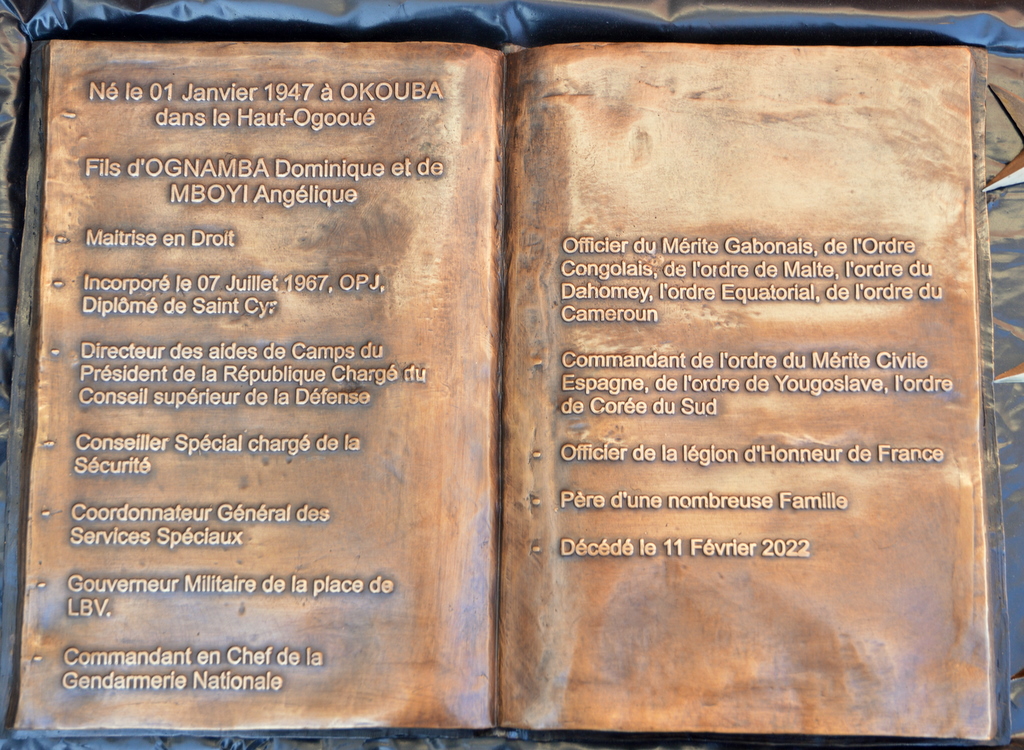 Né le 01 Janvier 1947 à OKOUBA
dans le Haut-Ogooué
Fils d'OGNAMBA Dominique et de
MBOYI Angélique
- Maitrise en Droit
- Incorporé le 07 Juillet 1967, OPJ,
Diplômé de Saint Cyr
- Directeur des aides de Camps du
Président de la République Chargé du
Conseil supérieur de la Défense
- Conseiller Spécial chargé de la
Sécurité
- Coordonnateur Général des
Services Spéciaux
- Gouverneur Militaire de la place de
LBV.
- Commandant en Chef de la
Gendarmerie Nationale
Officier du Mérite Gabonais, de l'Ordre
Congolais, de l'ordre de Malte, l'ordre du
Dahomey, l'ordre Equatorial, de l'ordre du
Cameroun
- Commandant de l'ordre du Mérite Civile
Espagne, de l'ordre de Yougoslave, l'ordre
de Corée du Sud
- Officier de la légion d'Honneur de France
- Père d'une nombreuse Famille
- Décédé le 11 Février 2022